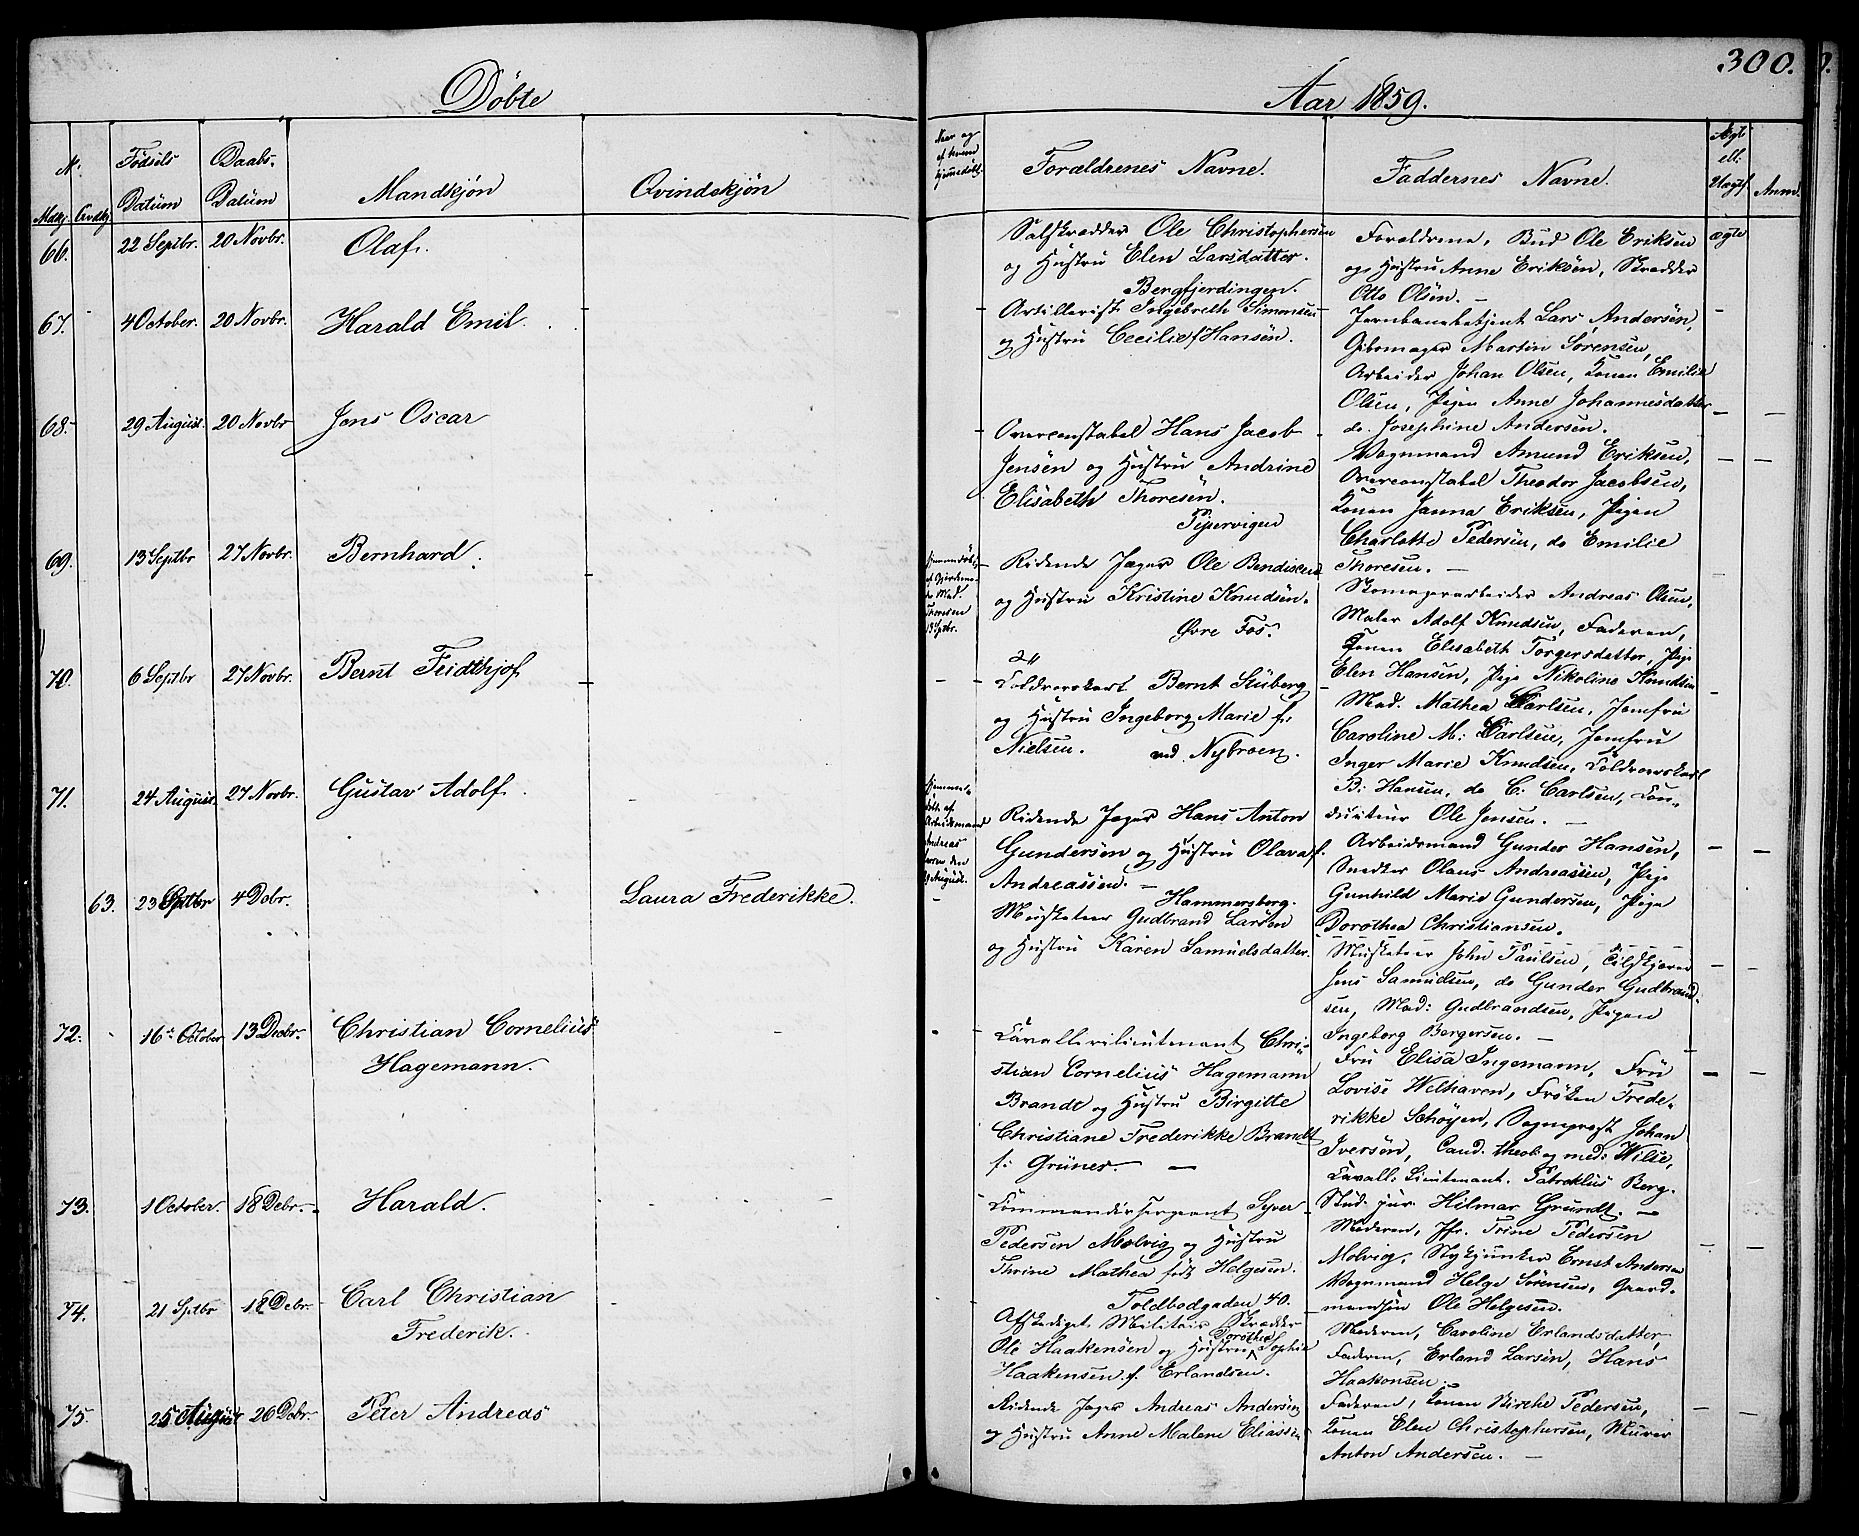 300.
Döbte
Aar 1859.
N.
Mdkj. Qvdkj.
Födsels Datum
Daabs- Datum
Mandkjøn
Qvindekjøn
Naar og af hvem hjemmedöbt.
Forældrenes Navne.
Faddernes Navne.
Ægte ell: Uægt.
Anm.
66. 22 Septbr. 20 Novbr. Olaf.
Ole Christophersen
og Hustru Elen Larsdatter.
Bergfjerdingen.
Forældrene, Bud Ole Eriksen
og Hustru Anne Eriksen, Skrædder
Otto Olsen. —
ægte
67. 4 October. 20 Novbr. Harald Emil.
Artillerist Ingebreth Simonsen
og Hustru Cecilie f Hansen.
Jernbanebetjent Lars Andersen,
Gibsmager Martin Sorensen,
Arbeider Johan Olsen, Konen Emilie
Olsen, Pigen Anne Johannesdatter
do. Josephine Andersen.
68. 29 August. 20 Novbr Jens Oscar
Overconstabel Hans Jacob
Jensen og Hustru Andrine
Elisabeth Thoresen.
Pipervigen
Vognmand Amund Eriksen,
Overconstabel Theodor Jacobsen,
Konen Janna Eriksen, Pigen
Charlotte Pedersen, do Emilie
Thoresen. —
69. 13 Septbr 27 Novbr. Bernhard.
Hjemmedöbt
af
Mad.
Thoresen
13 Sptbr.
Ridende Jæger Ole Bendixen
og Hustru Kristine Knudsen.
Øvre Fos.
Skomagerarbeider Andreas Olsen,
Maler Adolf Knudsen, Faderen,
Konen Elisabeth Torgersdatter, Pige
Elen Hansen, Pige Nikoline Knudsen
70. 6 Septbr 27 Novbr. Bernt Fridthjof
Toldroerskarl Bernt Stüberg
og Hustru Ingeborg Marie f.
Nielsen. ved Nybroen.
Mad. Mathea Carlsen, Jomfru
Caroline M: Carlsen, Jomfru
Inger Marie Knudsen, Toldroerskarl
B: Hansen, do C: Carlsen, Con-
ducteur Ole Jensen. —
71. 24 August. 27 Novbr. Gustav Adolf.
Hjemme-
döbt af
Arbeidsmand
Andreas
den
August.
Ridende Jæger Hans Anton
Gundersen og Hustru Olava f.
Andreassen. —
Hammersborg.
Arbeidsmand Gunder Hansen,
Snedker Olaus Andreassen, Pige
Gunhild Marie Gundersen, Pige
Dorothea Christiansen.
63. 23 Sptbr 4 Debr. Laura Frederikke.
Musketeer Gudbrand Larsen
og Hustru Karen Samuelsdatter.
Musketeer John Paulsen,
Jens Samuelsen, do Gunder Gudbrand-
sen, Mad: Gudbrandsen, Pigen
Ingeborg Bergersen. —
72. 16 October 13 Decbr. Christian Cornelius
Hagemann.
Cavallerilieutenant Chri-
stian Cornelius Hagemann
Brandt og Hustru Birgitte
Christiane Frederikke Brandt
f: Grüner. —
Fru Elisa Ingemann, Fru
Lovise Welhaven, Fröken Frede-
rikke Schøyen, Sogneprest Johan
Iversön, Cand. theol: og med: Wilse,
Cavall. Lieutenant. Patroklus Berg.
Stud: jur. Hilmar Grundt. —
73. 1 October. 18 Debr. Harald.
Commandersergeant Syver
Pedersen Molvig og Hustru
Thrine Mathea född Helgesen.
Toldbodgaden 40.
Moderen, Jfr. Trine Pedersen
Molvig, Stykjunker Ernst Andersen
Vognmand Helge Sörensen, Gaard-
mandsön Ole Helgesen.
74. 21 Sptbr 18 Debr. Carl Christian
Frederik.
Afskediget Militair Skrædder
Ole Haakensen og Hustru Dorothea Sophie
Haakensen f. Erlandsen.
Moderen, Caroline Erlandsdatter,
Faderen, Erland Larsen, Hans
Haakonsen.
75. 25 August 26 Debr. Peter Andreas
Ridende Jæger Andreas Andersen
og Hustru Anne Malene Eliassen
Faderen, Konen Birthe Pedersen,
Konen Elen Christophersen, Murer
Anton Andersen. —